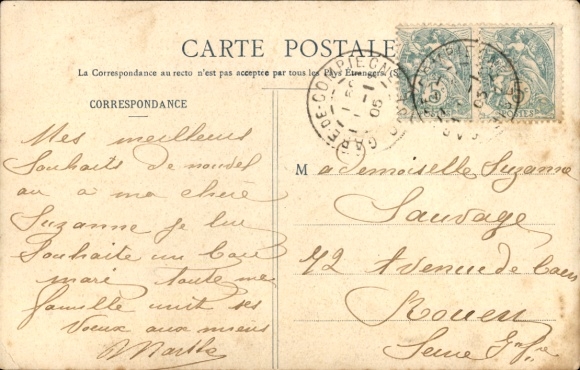 CARTE POSTALE
La Correspondance au recto n'est pas acceptée par tous les Pays Étrangers
CORRESPONDANCE
Mes meilleurs
Souhaits de nouvel
an à ma chère
Suzanne je lui
Souhaite un bon
mari toute ma
famille unit ses
voeux aux miens
Marthe
GARE-DE-COMPIEGNE
1-1
05
POSTES
Mademoiselle Suzanne
Sauvage
72 Avenue de Caen
Rouen
Seine Infre